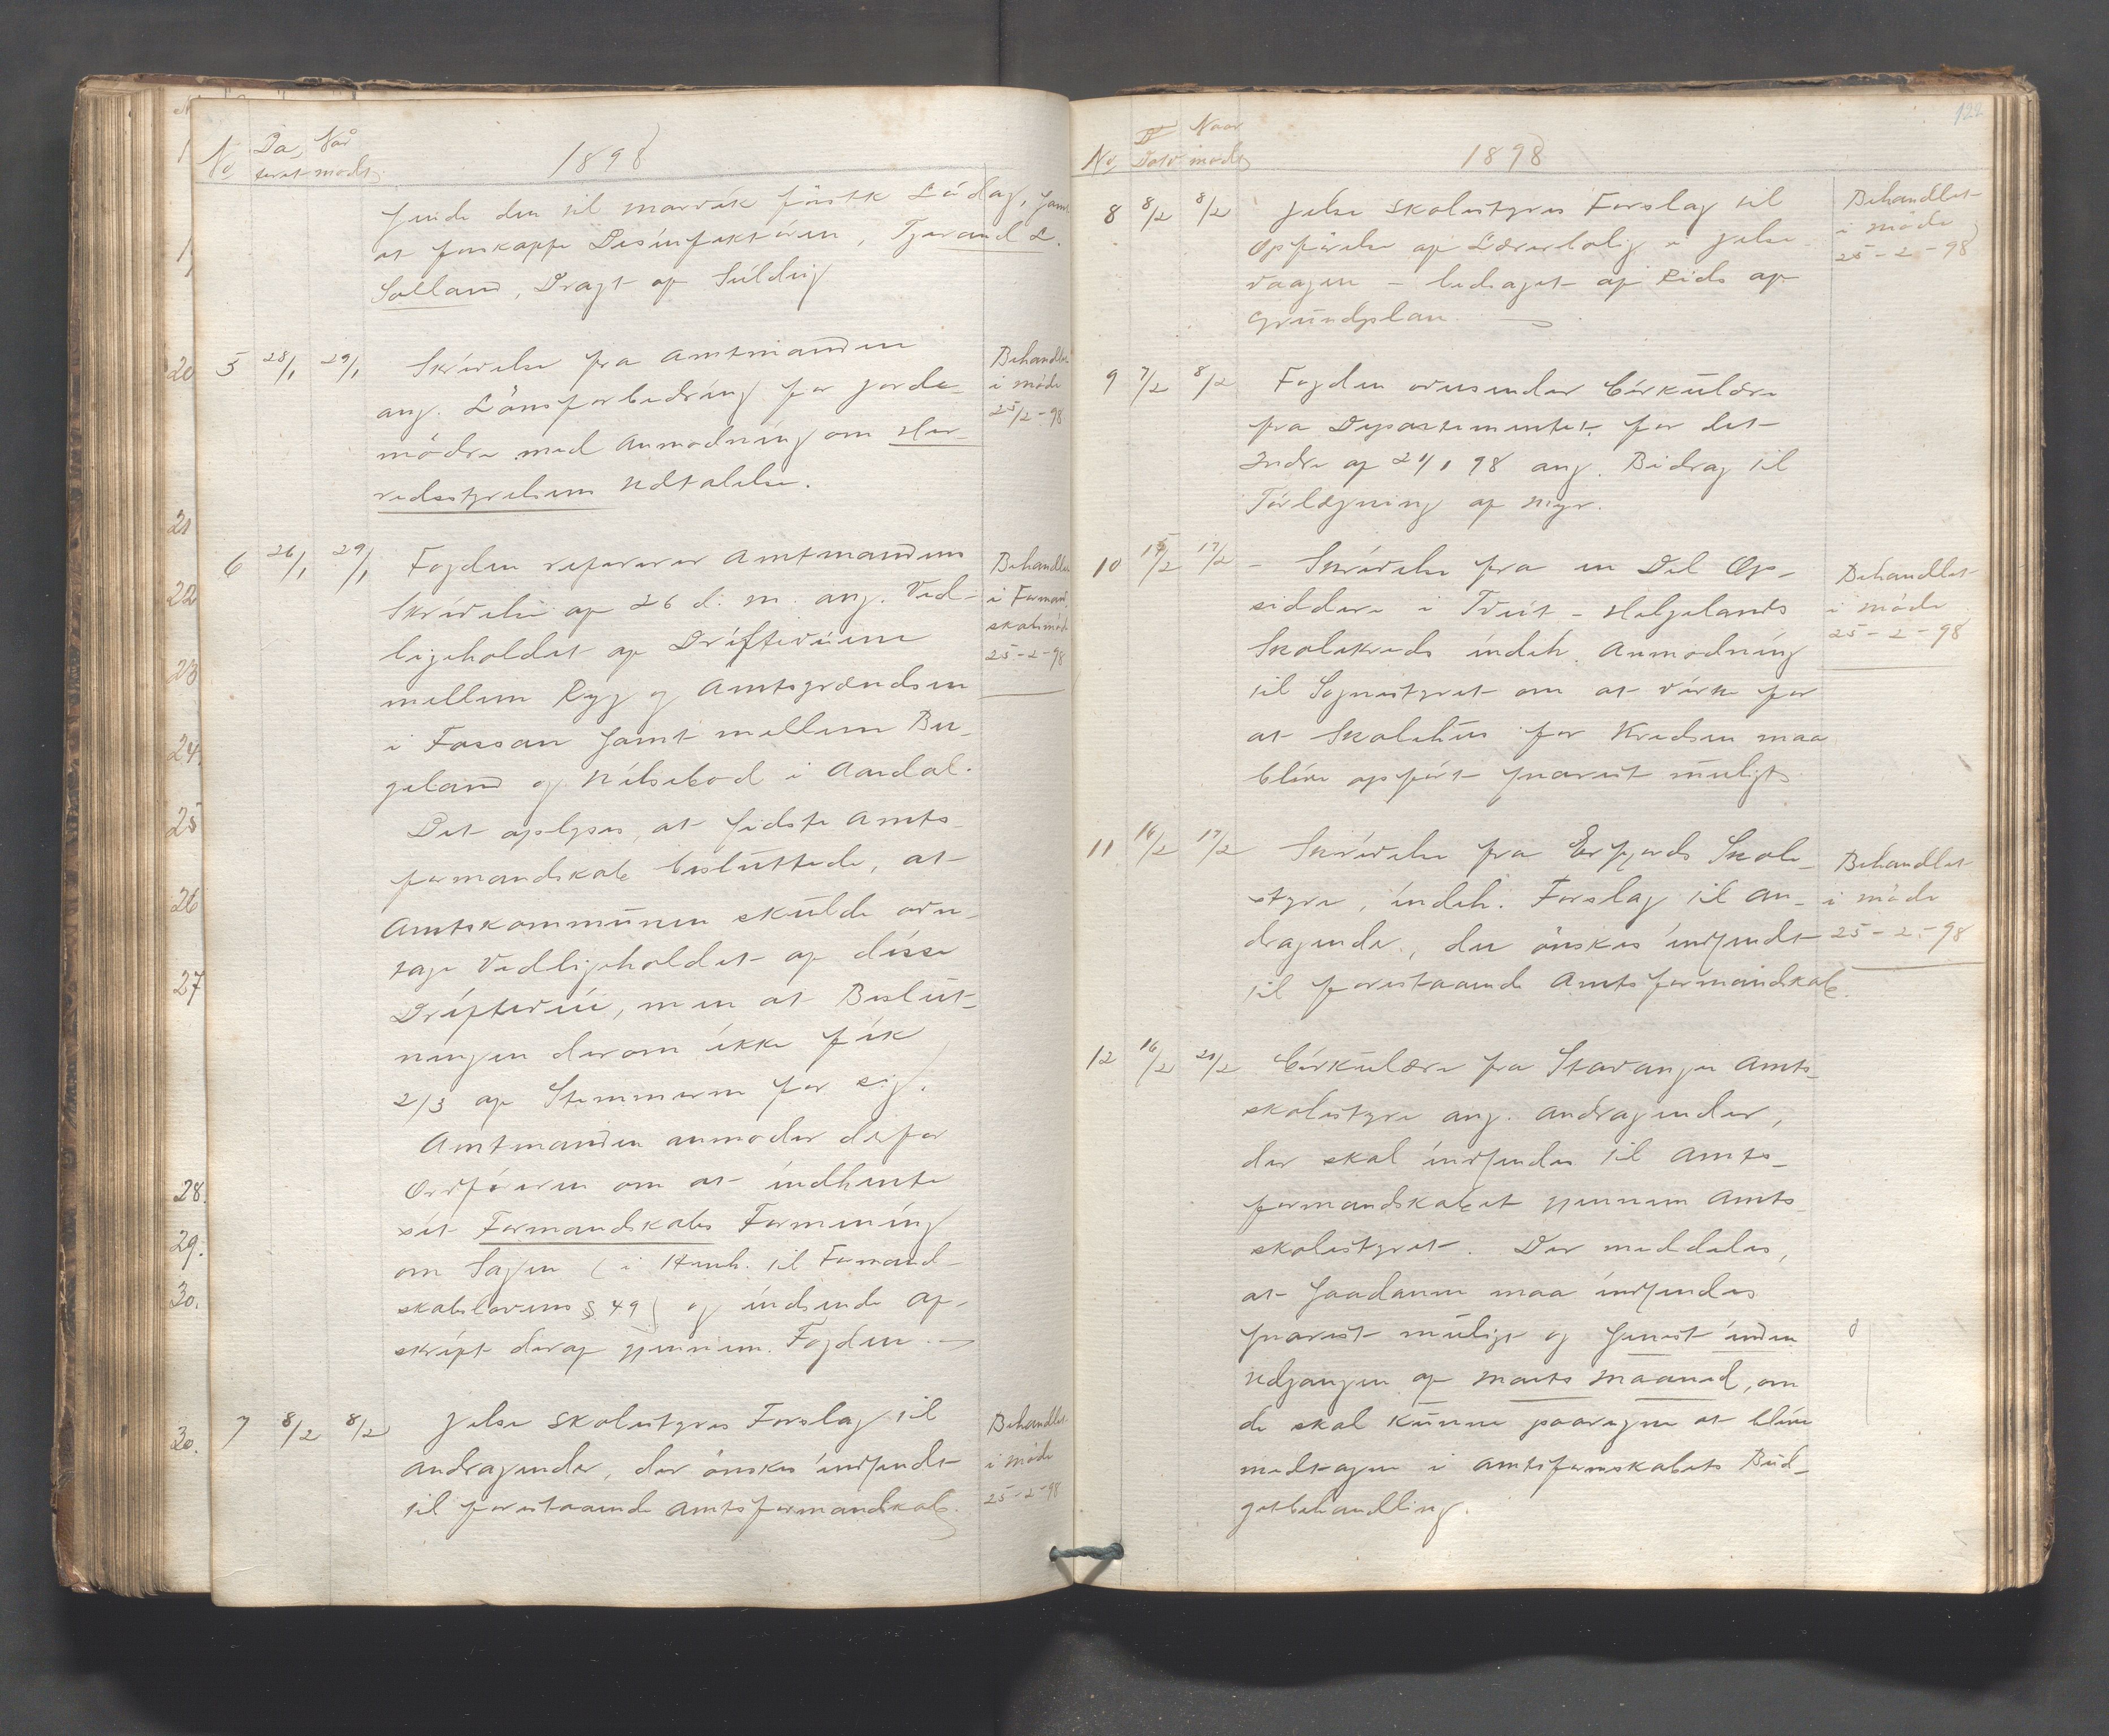 1898
No Da, Når
teret modt.
sende den til marvik förstk Lödag, samt
at forskaffe Desinfektören, Tjerand L.
Solland, Dragt af Süldig
5 28/1 29/1 Skrivelse fra Amtmanden
ang. Lönsforbedring for Jorde-
mödre med Anmodning om Her-
redsstyrelsens Udtalelse.
Behandlet
i möde
25/2-98
6 26/1 29/1 Fogden refererer Amtmandens
Skrivelse af 26 d. m. ang. Ved-
ligeholdet af Drifteveiene
mellem Ryg og Amtsgrændsen
i Fossan samt mellem Bu-
geland og Nilsebod i Aardal.
Det oplyses, at sidste Amts-
formandskab besluttede, at
Amtskommunen skulde over-
tage Vedligeholdet af disse
Drifteveie, men at Beslut-
ningen derom ikke fik
2/3 af Stemmerne for sig.
Amtmanden anmoder derfor
Ordföreren om at indhente
sit Formandskabs Formening
om Sagen (i Henh. til Formand-
skabslovens § 49) og indsende Af-
skript deraf gjennem Fogden.
Behandlet
i Formand
skabsmöde
25-2-98
7 8/2 8/2 Jelse Skolestyres Forslag til
Andragender, der önskes indsendt
til forestaaende Amtsformandskab.
Behandlet
i möde
25-2-98
122
1898
No Dato Naar
modt
8 8/2 8/2 Jelse Skolestyres Forslag til
Opförelse af Lærerbolig i Jelse-
vaagen - ledsaget af Rids af
Grundplan.
Behandlet
i möde
25-2-98
9 7/2 8/2 Fogden oversender Cirkulære
fra Departementet for det
Indre af 21/1 98 ang. Bidrag til
Törlægning af Myr.
10 15/2 17/2 - Skrivelse fra en Del Op-
siddere i Tveit - Helgelands
Skolekreds indeh. Anmodning
til Sognestyret om at virke for
at Skolehus for Kredsen maa
blive opfört snarest muligt
Behandlet
i möde
25-2-98
11 16/2 17/2 Skrivelse fra Erfjords Skole-
styre, indeh. Forslag til An-
dragende, der önskes indsendt
til forestaaende Amtsformandskab.
Behandlet
i möde
25-2-98
12 16/2 20/2 Cirkulære fra Stavanger Amts-
skolestyre ang. Andragender,
der skal indsendes til Amts-
formandskabet gjennem Amts-
skolestyret. Der meddeles,
at saadanne maa indsendes
snarest muligt og senest inden
Udgangen af Marts Maaned, om
de skal kunne paaregne at blive
medtagne i Amtsformskabets Bud-
getbehandling.